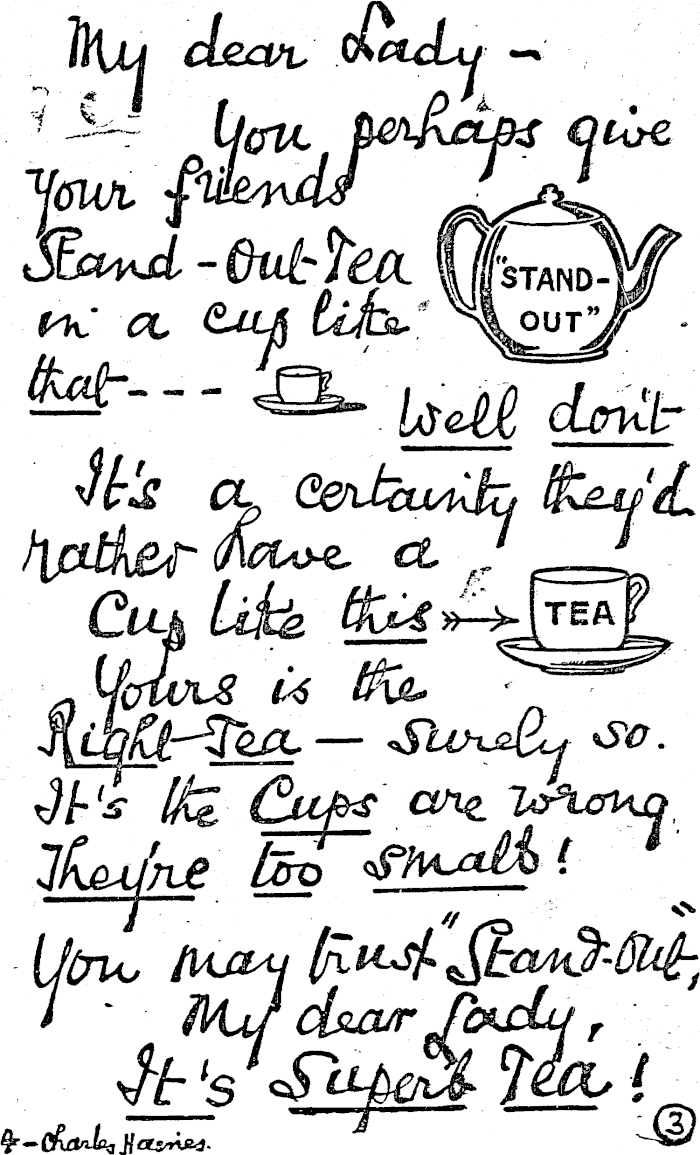 My dear Lady –
You perhaps give
your friends
Stand-Out-Tea
in a cup like
that - - -
"STAND-
OUT"
Well don't
It's a certainty they'd
rather have a
Cup like this
TEA
Yours is the
Right Tea – surely so.
It's the Cups are wrong
They're too small!
You may trust "Stand-Out",
My dear Lady,
It's Superb Tea!
3
– Charles Haines.